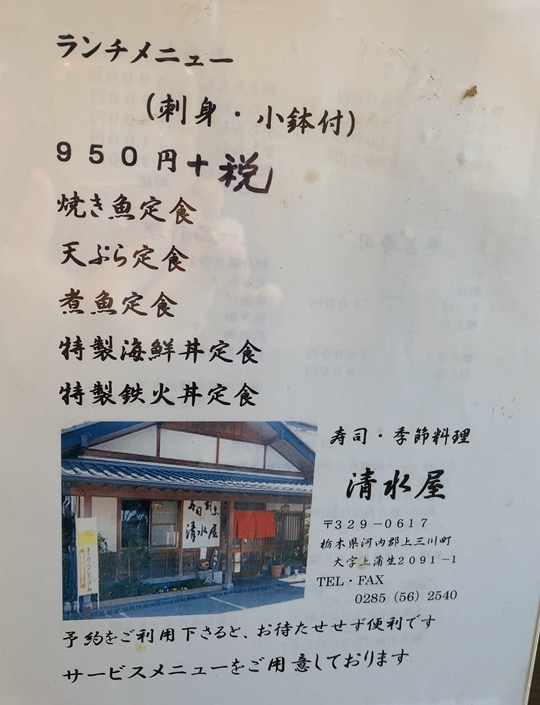 ランチメニュー
(刺身・小鉢付)
950円+税
焼き魚定食
天ぷら定食
煮魚定食
特製海鮮丼定食
特製鉄火丼定食
寿司・季節料理
清水屋
〒329-0617
栃木県河内郡上三川町
大字上蒲生2091-1
TEL・FAX
0285(56)2540
寿司 割烹
清水屋
予約をご利用下さると、お待たせせず便利です
サービスメニューをご用意しております